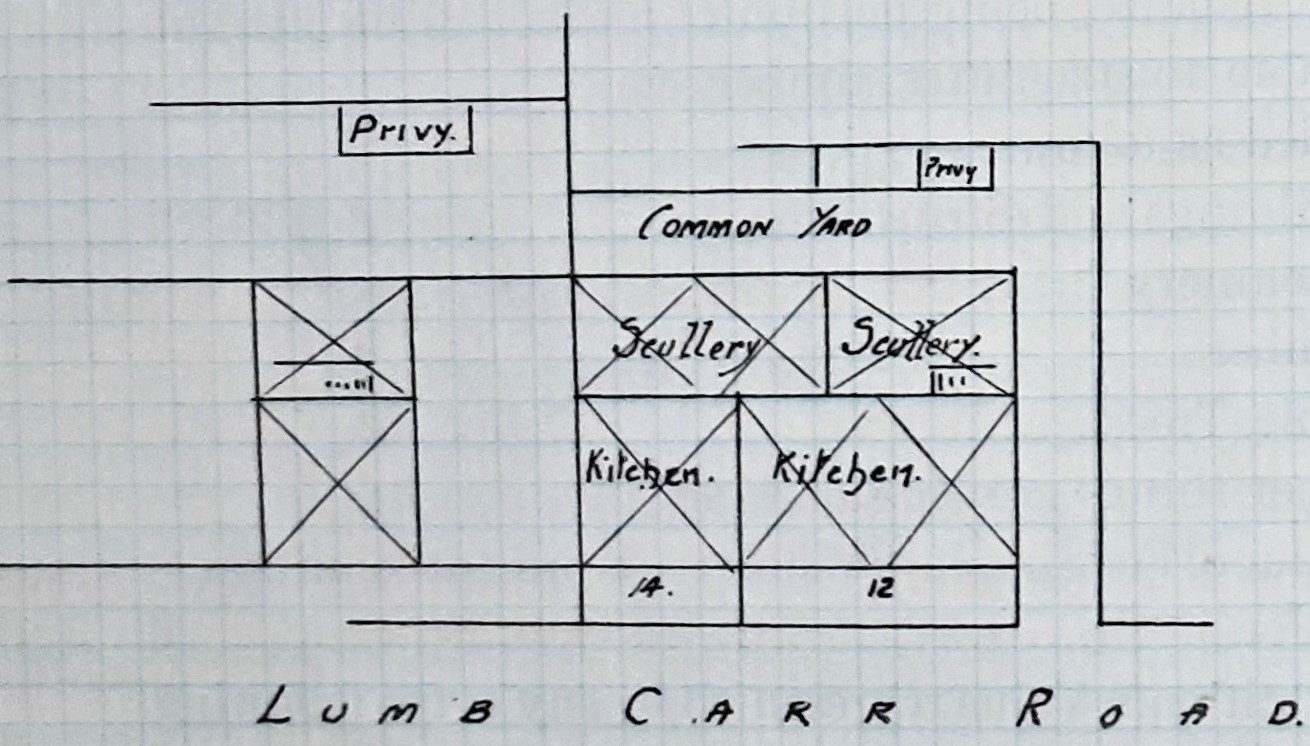 Privy.
Privy
COMMON YARD
Scullery
Scullery.
Kitchen.
Kitchen.
14.
12
LUMB CARR ROAD.